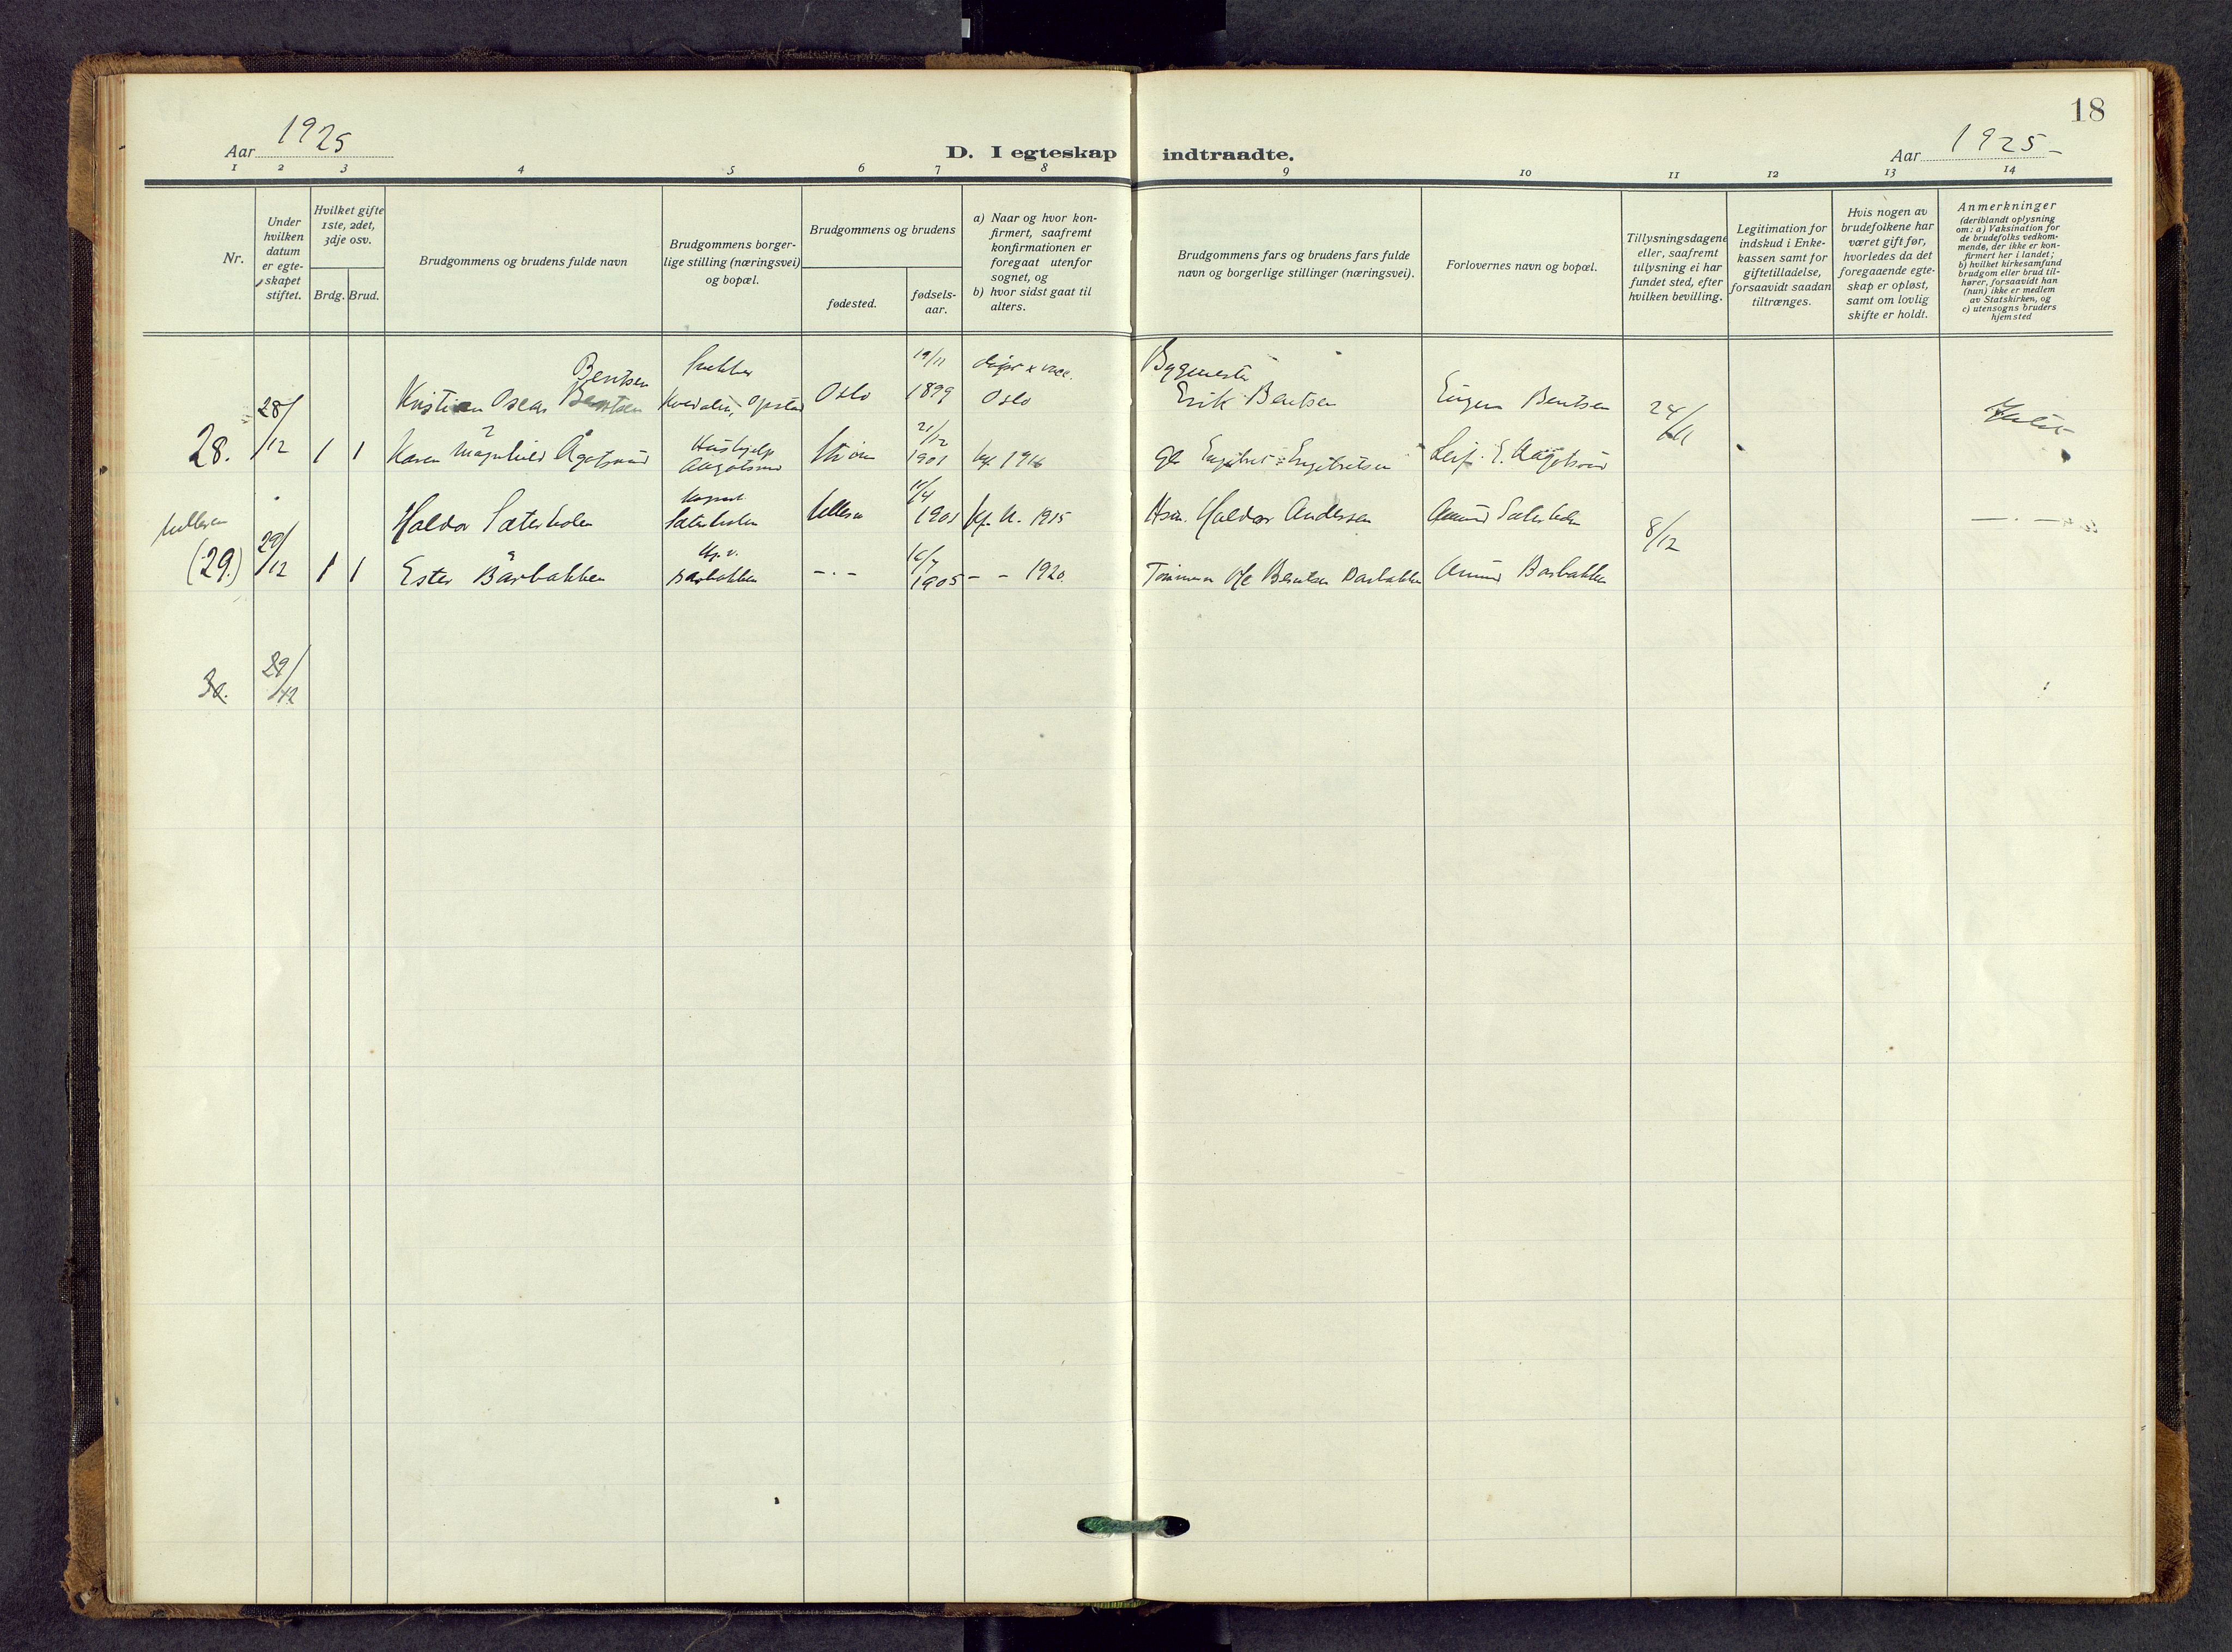 18
Aar 1925
D. I egteskap indtraadte.
Aar 1925
1 2 3 4 5 6 7 8 9 10 11 12 13 14
Nr.
Under
hvilken
datum
er egte-
skapet
stiftet.
Hvilket gifte
1ste, 2det,
3dje osv.
Brdg. Brud.
Brudgommens og brudens fulde navn
Brudgommens borger-
lige stilling (næringsvei)
og bopæl.
Brudgommens og brudens
fødested.
fødsels-
aar.
a) Naar og hvor kon-
firmert, saafremt
konfirmationen er
foregaat utenfor
sognet, og
b) hvor sidst gaat til
alters.
Brudgommens fars og brudens fars fulde
navn og borgerlige stillinger (næringsvei).
Forlovernes navn og bopæl.
Tillysningsdagene
eller, saafremt
tillysning ei har
fundet sted, efter
hvilken bevilling.
Legitimation for
indskud i Enke-
kassen samt for
giftetilladelse,
forsaavidt saadan
tiltrænges.
Hvis nogen av
brudefolkene har
været gift før,
hvorledes da det
foregaaende egte-
skap er opløst,
samt om lovlig
skifte er holdt.
Anmerkninger
(deriblandt oplysning
om: a) Vaksination for
de brudefolks vedkom-
mende, der ikke er kon-
firmert her i landet;
b) hvilket kirkesamfund
brudgom eller brud til-
hører, forsaavidt han
(hun) ikke er medlem
av Statskirken, og
c) utensogns bruders
hjemsted
Bentsen 19/11 Bygmester
28/12 Kristian Oscar Bentsen Oslo 1899 Oslo Erik Bentsen Bentsen 24/11
28. 1 1 Karen Magnhild Ågotsrud Hushjelp Aagotsrud 21/12 1901 1916 Leif E. Aagotsrud
Ullern 11/4
Haldor Sæterholen Sæterholen 1901 1915 Haldor Andersen Sæterholen 8/12
(29.) 29/12 1 1 Ester Bårbakken Barbakken -.- 1905 - - 1920. Bentsen Barbakken Barbakken
30. 29/12